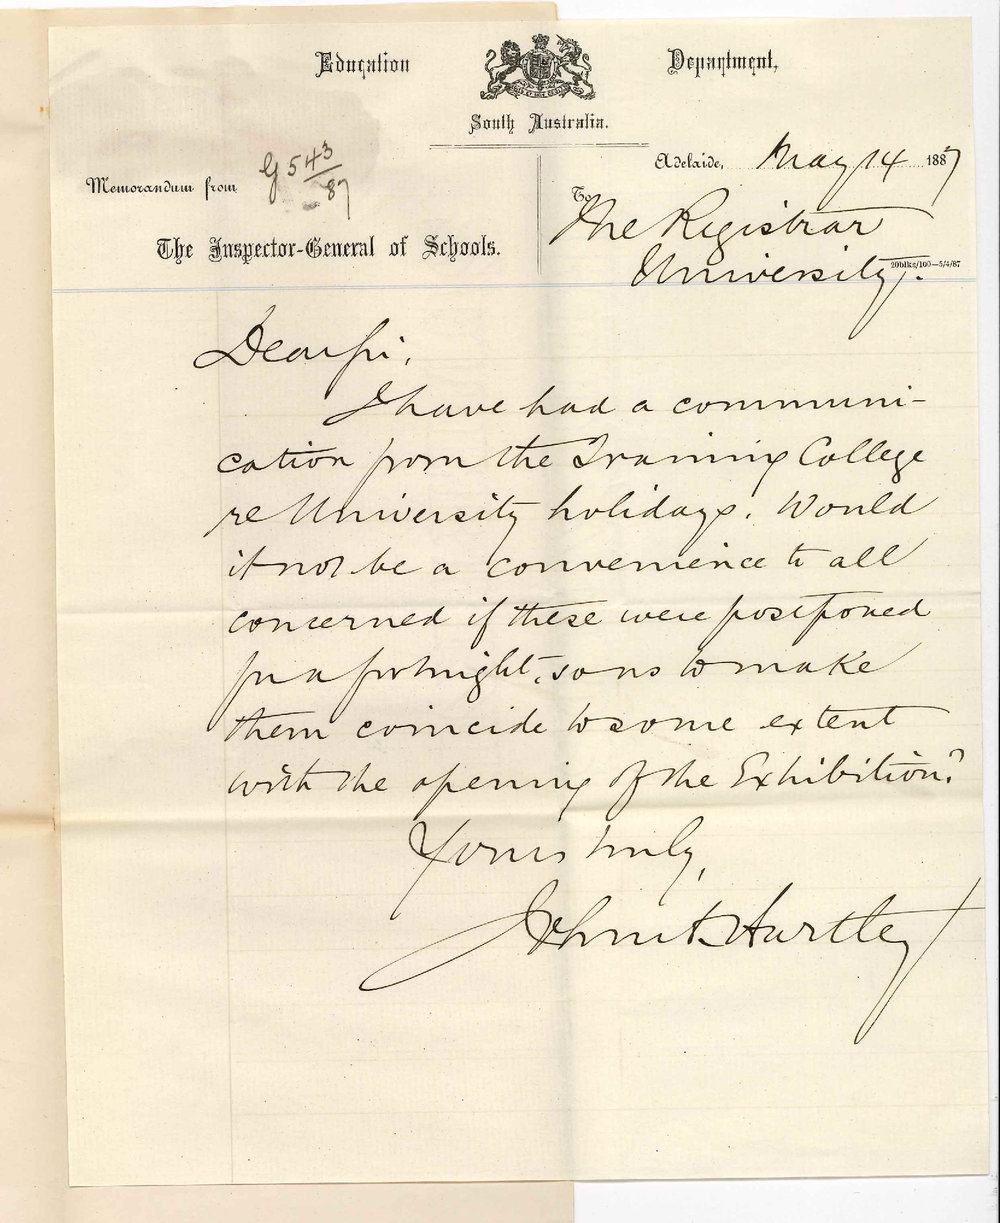 Education Department,
South Australia.
Adelaide, May 14 1887
G 543/87
Memorandum from
The Inspector-General of Schools.
To
The Registrar
University.
20blks/100—5/4/87
Dear Sir,
I have had a communi-
cation from the Training College
re University holidays. Would
it not be a convenience to all
concerned if these were postponed
for a fortnight, so as to make
them coincide to some extent
with the opening of the Exhibition?
Yours truly,
John A. Hartley